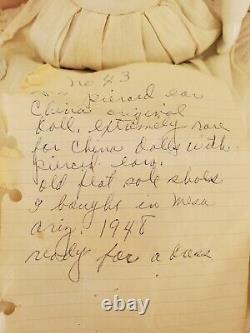 no. 43
pierced ear
China original
doll, extemely rare
for China dolls with
pierced ears.
old flat sole shoes
I bought in Mesa
Ariz. 1948
ready for a case